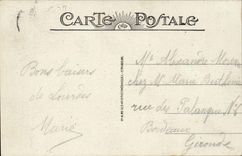 CARTE POSTALE
Bons baisers
de Lourdes
Marie
Mr Alexandre
chez Mr Marie
rue du Palangue No
Bordeaux
Gironde